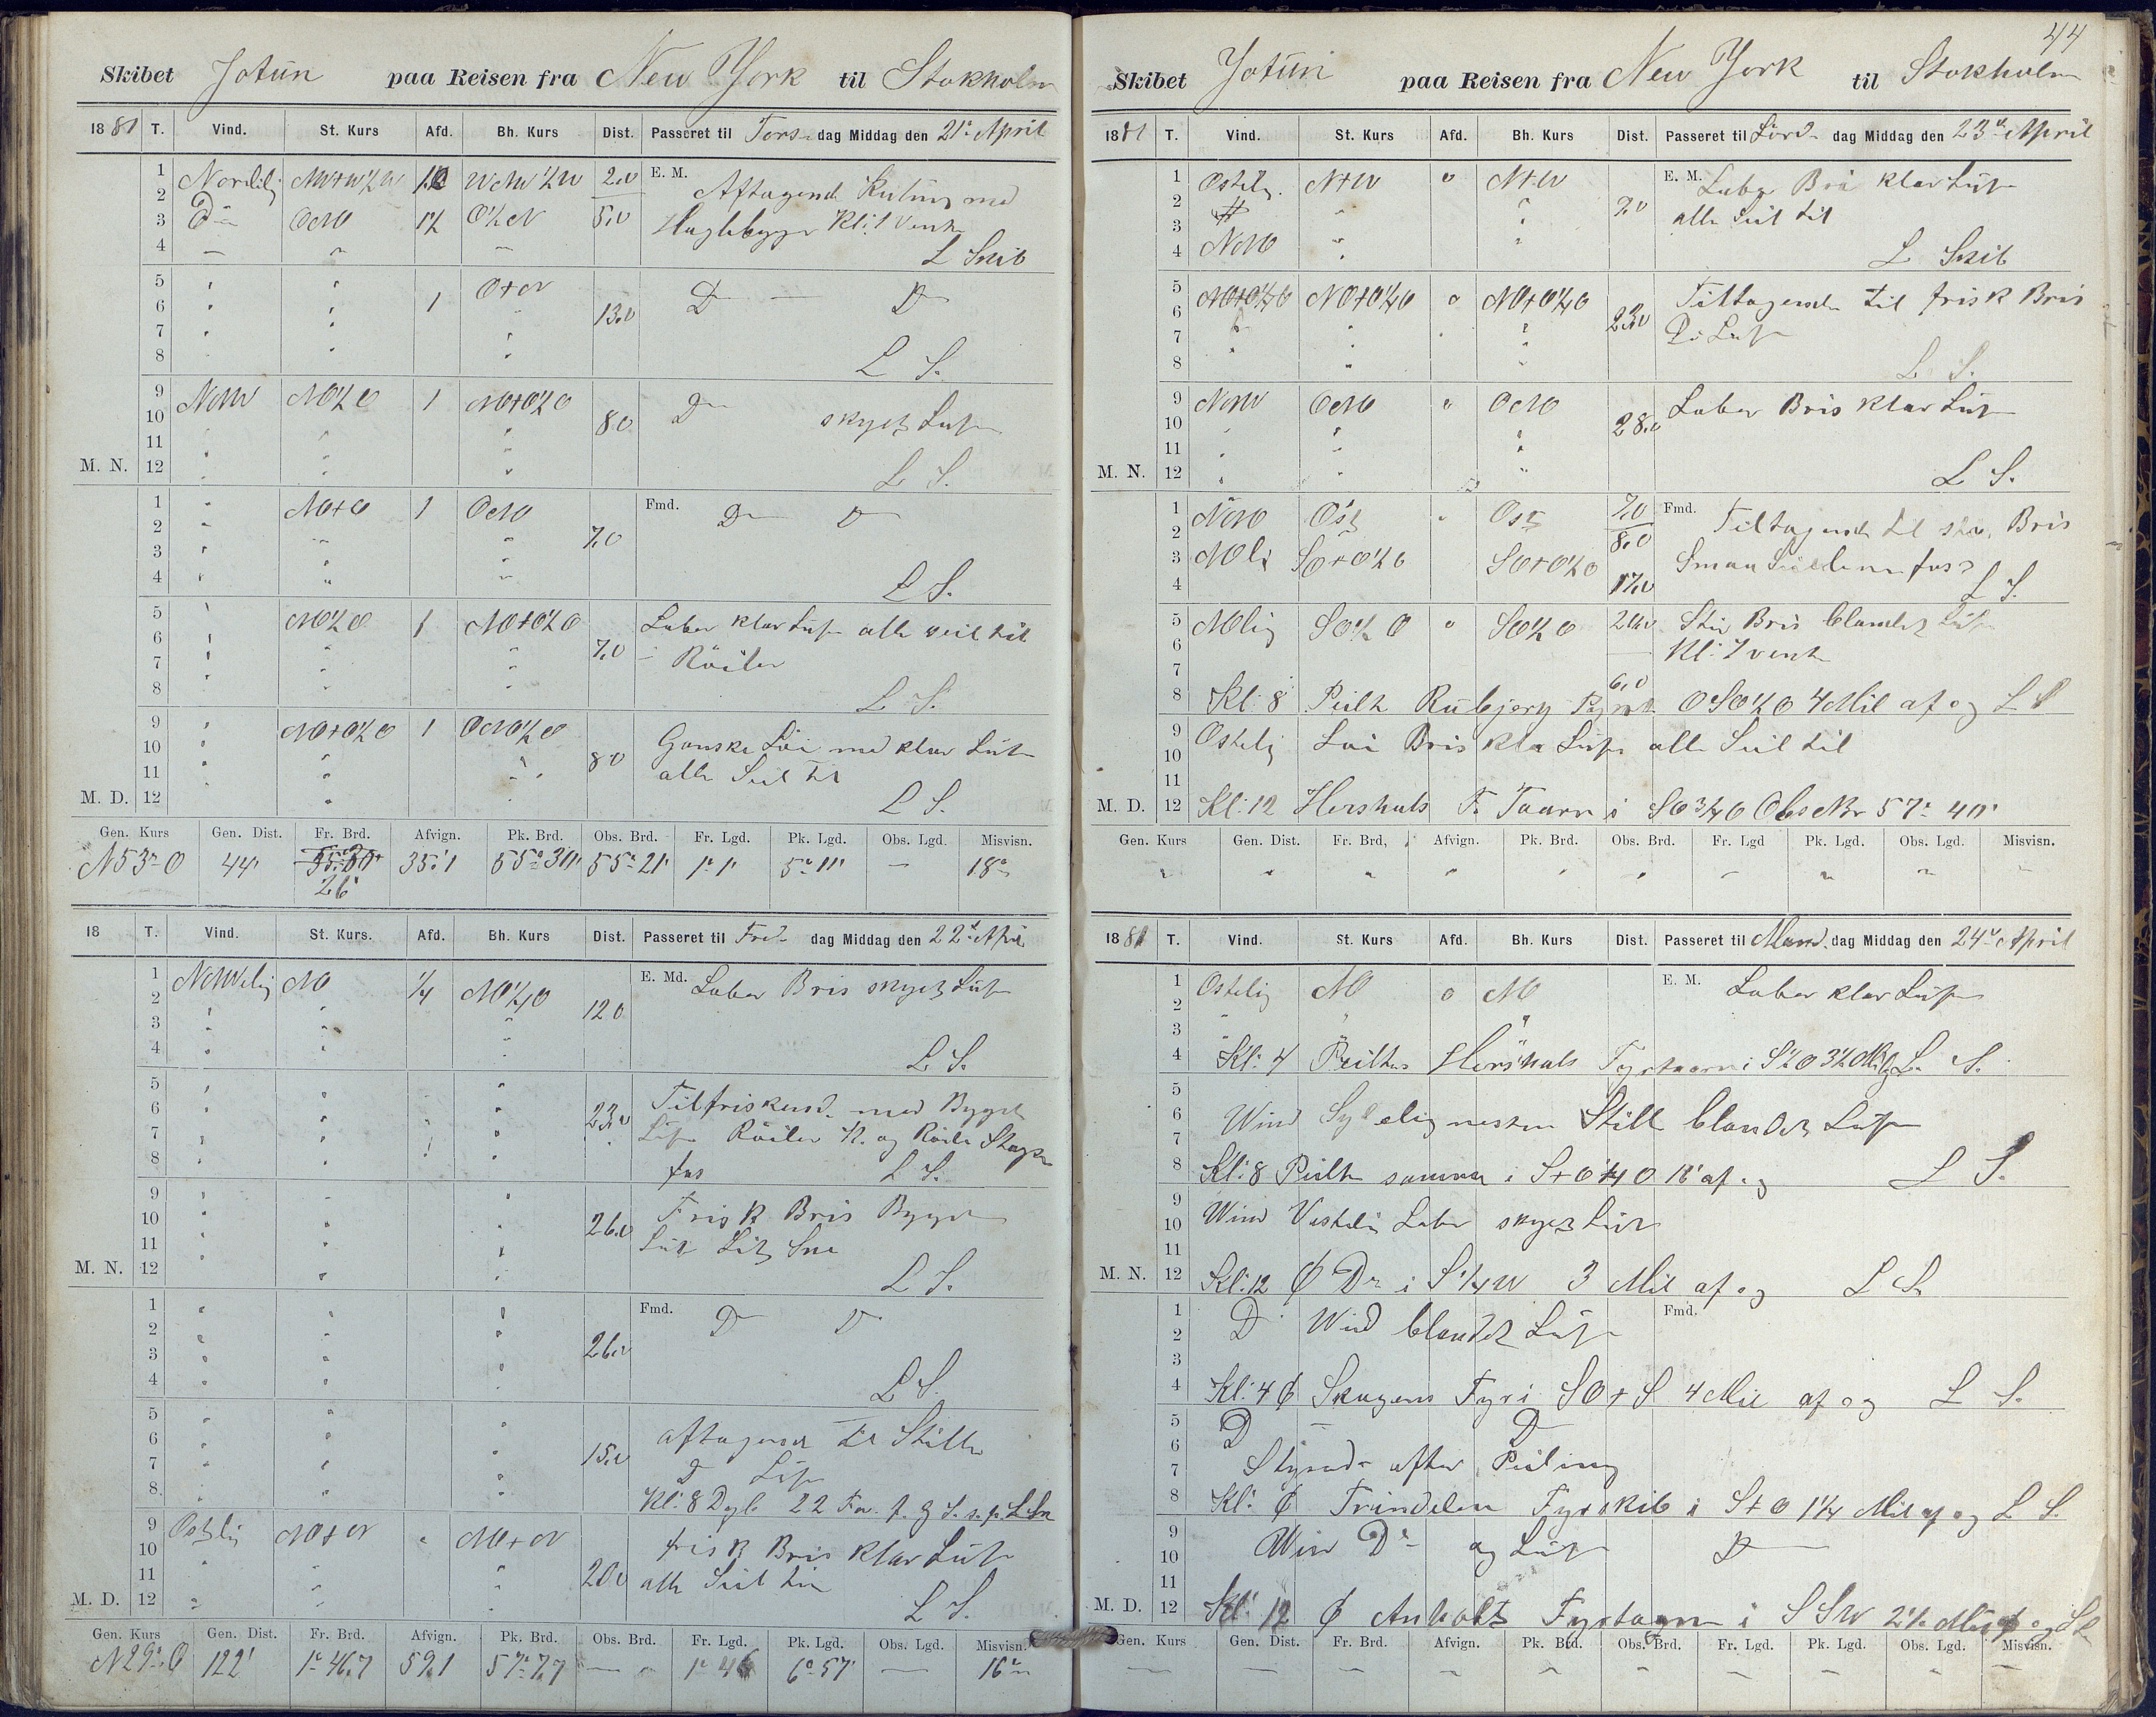 Skibet Jotün paa Reisen fra New York til Stokholm
1881 T. Vind. St. Kurs Afd. Bh. Kurs Dist. Passeret til Tors- dag Middag den 21de April
1 Nordlig 2,0 E. M.
2 Aftagende Kuling med
3 Do ONO 1½ O½N 5,0 Haglebyger Kl: 1 vendte
4 L Skib
5 O+N
6 1 13,0 D — D
7
8 L S.
9 NNW NO½O 1 NO+O½O
10 8,0 D skyet Luft
11
M. N. 12 L S.
1 NO+O 1 ONO Fmd. D D
2 7,0
3
4 L S.
5 NO½O 1 NO+O½O Laber klar Luft alle seil til
6 7,0
7 Röiler
8 L S.
9 NO+O½O 1 ONO½O
10 8,0 Ganske Löi med klar Luft
11 alle Seil til
M. D. 12 L S.
Gen. Kurs Gen. Dist. Fr. Brd. Afvign. Pk. Brd. Obs. Brd. Fr. Lgd. Pk. Lgd. Obs. Lgd. Misvisn.
N53°O 44' 26' 35,1 55°30' 55°21' 1°1' 5°11' — 18°
18 T. Vind. St. Kurs. Afd. Bh. Kurs Dist. Passeret til Fre- dag Middag den 22de April
1 NNWelig NO ¼ NO¼O E. Md. Laber Bris skyet Luft
2 12,0
3
4 L S.
5 Tilfriskend. med Byget
6 23,0
7 Luft Röiler K. og Röile Stags
8 fas L S.
9
10 26,0 Frisk Bris Byget
11 Luft Lidt Sne
M. N. 12 L S.
1 Fmd. D D
2
3 26,0
4 L S.
5
6 15,0 aftagende til Stille
7 D Luft
8 Kl: 8 Dybe 22 Fav.
9 Ostlig NO+N NO+N
10 frisk Bris klar Luft
11 20,0 alle Seil til
M. D. 12 L S.
Gen. Kurs Gen. Dist. Fr. Brd. Afvign. Pk. Brd. Obs. Brd. Fr. Lgd. Pk. Lgd. Obs. Lgd. Misvisn.
N29°O 122' 1°46,7 59,1 57°7,7 — 1°46 6°57' — 16°
44
Skibet Jotün paa Reisen fra New York til Stokholm
1881 T. Vind. St. Kurs Afd. Bh. Kurs Dist. Passeret til Lörd- dag Middag den 23de April
1 Ostlig. N+W " N+W E. M. Laber Bris klar Luft
2 7,0 alle Seil til
3
4 NNO L Skib
5 NO+O¼O NO+O¼O " NO+O¼O Tiltagende til frisk Bris
6 23,0
7 Do Luft
8 L S.
9 NNW ONO " ONO Laber Bris klar Luft
10 28,0
11
M. N. 12 L S.
1 NNO Ost " Ost 7,0 Fmd. Tiltagende til stiv Bris
2 8,0
3 NOli SO+O½O SO+O½O Smaa Seilene fas
4 17,0 L S.
5 NOlig SO½O " SO½O 20,0 Stiv Bris blandet Luft
6 Kl: 7 vendt
7 6,0
8 Kl: 8 Peilt Rubjerg OSO½O 4 Mil af og L S
9 Ostlig Löi Bris klar Luft alle Seil til
10
11
M. D. 12 Kl: 12 Hershals F. Taarn i SO¾O Obs Br 57° 40'
Gen. Kurs Gen. Dist. Fr. Brd, Afvign. Pk. Brd. Obs. Brd. Fr. Lgd Pk. Lgd. Obs. Lgd. Misvisn.
1881 T. Vind. St. Kurs Afd. Bh. Kurs Dist. Passeret til Mand. dag Middag den 24de April
1 Ostelig NO o NO E. M. Laber klar Luft
2
3
4 Kl: 4 Peiltes Hershals Fyrtaarn i S½O 3½ Mil L. S.
5
6 Wind Sydelig nesten Stille blandet Luft
7
8 Kl: 8 Peilt samma i S+O¼O 18' af og L S.
9
10 Wind Vestelig Laber skyet Luft
11
M. N. 12 Kl: 12 ₵ Do i S¼W 3 Mil af og L S
1 Do Wind blandet Luft Fmd.
2
3
4 Kl: 4 ₵ Skagens Fyr i SO+S 4 Mil af og L S.
5 D — D
6
7 Styrede efter Peiling
8 Kl: ₵ Trindelen Fyrskib i S+O 1¼ Mil af og L S.
9
10 Win Do og Luft D
11
M. D. 12 Kl: 12 ₵ Anholts Fyrtagrn i SSW 2½ Mil af og L S
Gen. Kurs Gen. Dist. Fr. Brd. Afvign. Pk. Brd. Obs. Brd. Fr. Lgd. Pk. Lgd. Obs. Lgd. Misvisn.